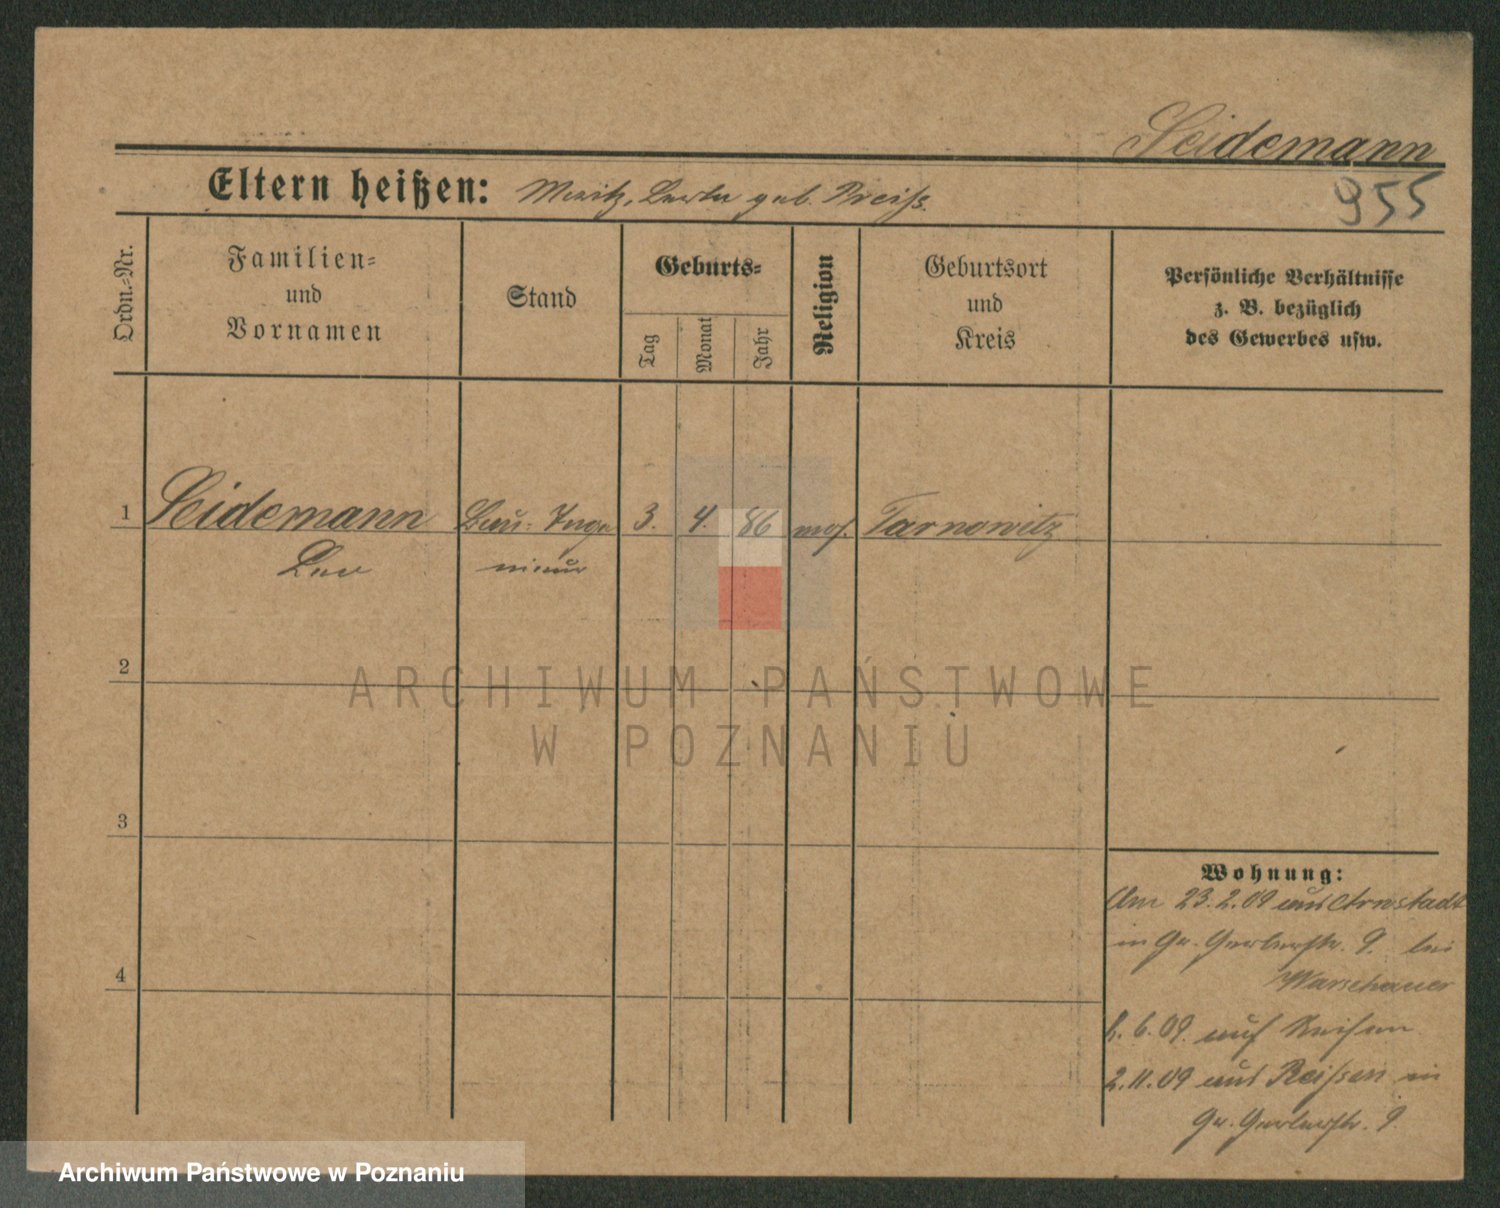 Seidemann
955
Eltern heißen: Moritz, Berta geb. Preiß.
Ordn.-Nr.
Familien-
und
Vornamen
Stand
Geburts-
Tag
Monat
Jahr
Religion
Geburtsort
und
Kreis
Persönliche Verhältnisse
z. B. bezüglich
des Gewerbes usw.
1 Seidemann Bau-Inge 3. 4. 86 mos. Tarnowitz
Leo nieur
2
ARCHIWUM PAŃSTWOWE
W POZNANIU
3
Wohnung:
Am 23.2.09 aus Arnstadt
in Gr. Gerberstr. 9. bei
Warschauer
6.09. auf Reisen
2.11.09 aus Reisen in
Gr. Gerberstr. 9
4
Archiwum Państwowe w Poznaniu